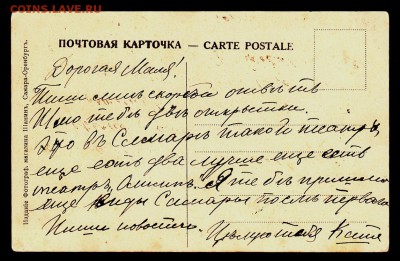 COINS.LAVE.RU
ПОЧТОВАЯ КАРТОЧКА — CARTE POSTALE
Изданіе Фотограф. магазина Шкалихъ. Самара-Оренбургъ.
Дорогая Маля!
Пиши мнѣ скорѣй отвѣтъ
тебѣ двѣ открытки.
Это въ Самарѣ такой театръ,
еще есть два лучше еще есть
театръ, Олимпъ. Я тебѣ пришлю
еще виды Самары послѣ первого
Пиши новости. Цѣлую тебя Катя